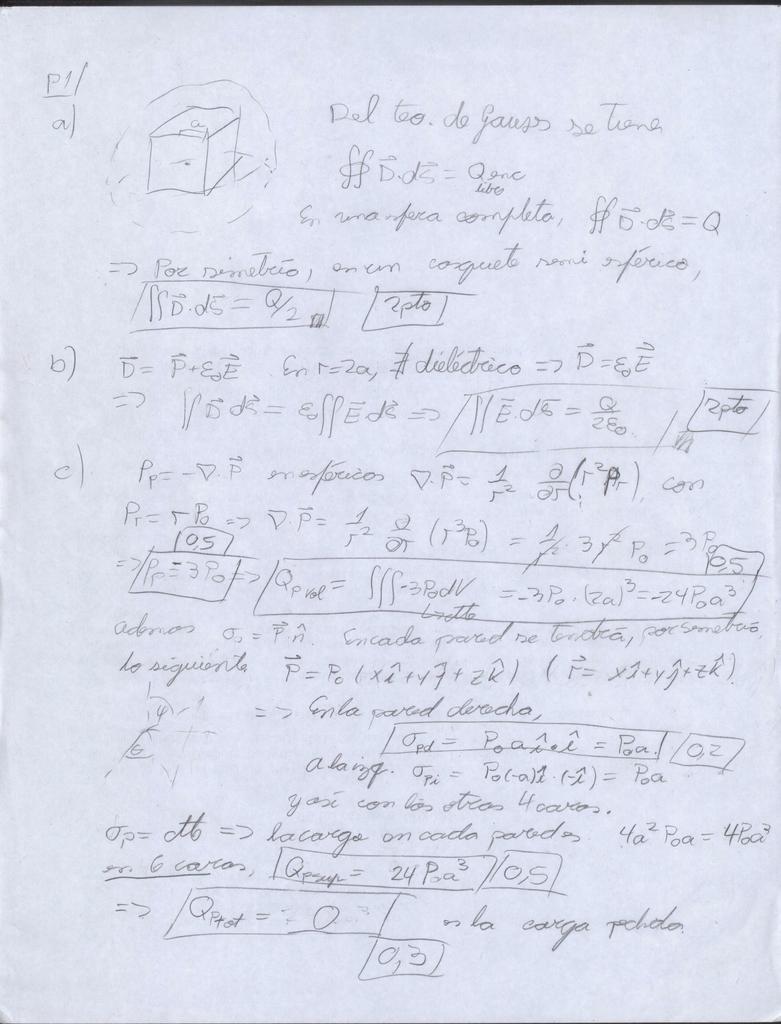 P1/
a)
a
Del teo. de Gauss se tiene
∯ D⃗·ds⃗ = Q enc
libre
En una esfera completa, ∯ D⃗·ds⃗ = Q
=> Por simetría, en un casquete semi esférico,
∬ D⃗·ds⃗ = Q/2 2pto
b) D⃗ = P⃗ + ε₀E⃗ En r=2a, ∄ dieléctrico => D⃗ = ε₀E⃗
=> ∬ D⃗ ds⃗ = ε₀∬ E⃗ ds⃗ => ∬ E⃗·ds⃗ = Q/2ε₀ 2pto
c) ρp = -∇·P⃗ en esféricos ∇·P⃗ = 1/r² ∂/∂r (r²Pr), con
Pr = rP₀ => ∇·P⃗ = 1/r² ∂/∂r (r³P₀) = 1/r² · 3r² P₀ = 3P₀
0,5 0,5
=> ρp = 3P₀ => Qp vol = ∭ -3P₀dV = -3P₀·(2a)³ = -24P₀a³
↳ cte
ademas σp = P⃗·n̂. En cada pared se tendrá, por simetría,
lo siguiente P⃗ = P₀(xî+yĵ+zk̂) (r⃗ = xî+yĵ+zk̂)
=> En la pared derecha,
σpd = P₀aî·î = P₀a. 0,2
a la izq. σpi = P₀(-a)î·(-î) = P₀a
y así con las otras 4 caras.
σp = cte => la carga en cada pared es 4a²P₀a = 4P₀a³
en 6 caras, Qpsup = 24P₀a³ 0,5
=> Qptot = 0 es la carga pedida.
0,3